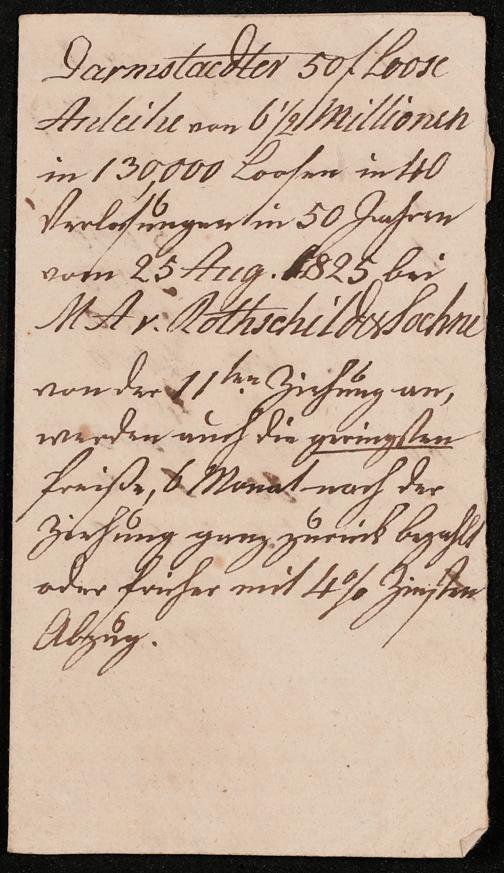 Darmstaedter 50f Loose
Anleihe von 6 1/2 Millionen
in 130,000 Loosen in 40
Verlosungen in 50 Jahren
vom 25 Aug. 1825 bei
M A v. Rothschild & Soehne
von der 11ten Ziehung an,
werden auch die geringsten
Preiße, 6 Monat nach der
Ziehung ganz zurück bezahlt
oder früher mit 4% Zinsen
Abzug.